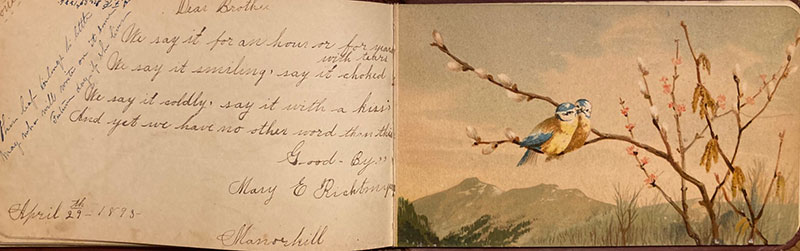 Dear Brother
We say it for an hour or for years
We say it smiling, say it choked
with tears
We say it coldly, say it with a kiss
And yet we have no other word than this
Good-By"
Mary E Richtmy
April 29th - 1893-
Manorhill
This leaf belongs to little
May who will write on it some
future day